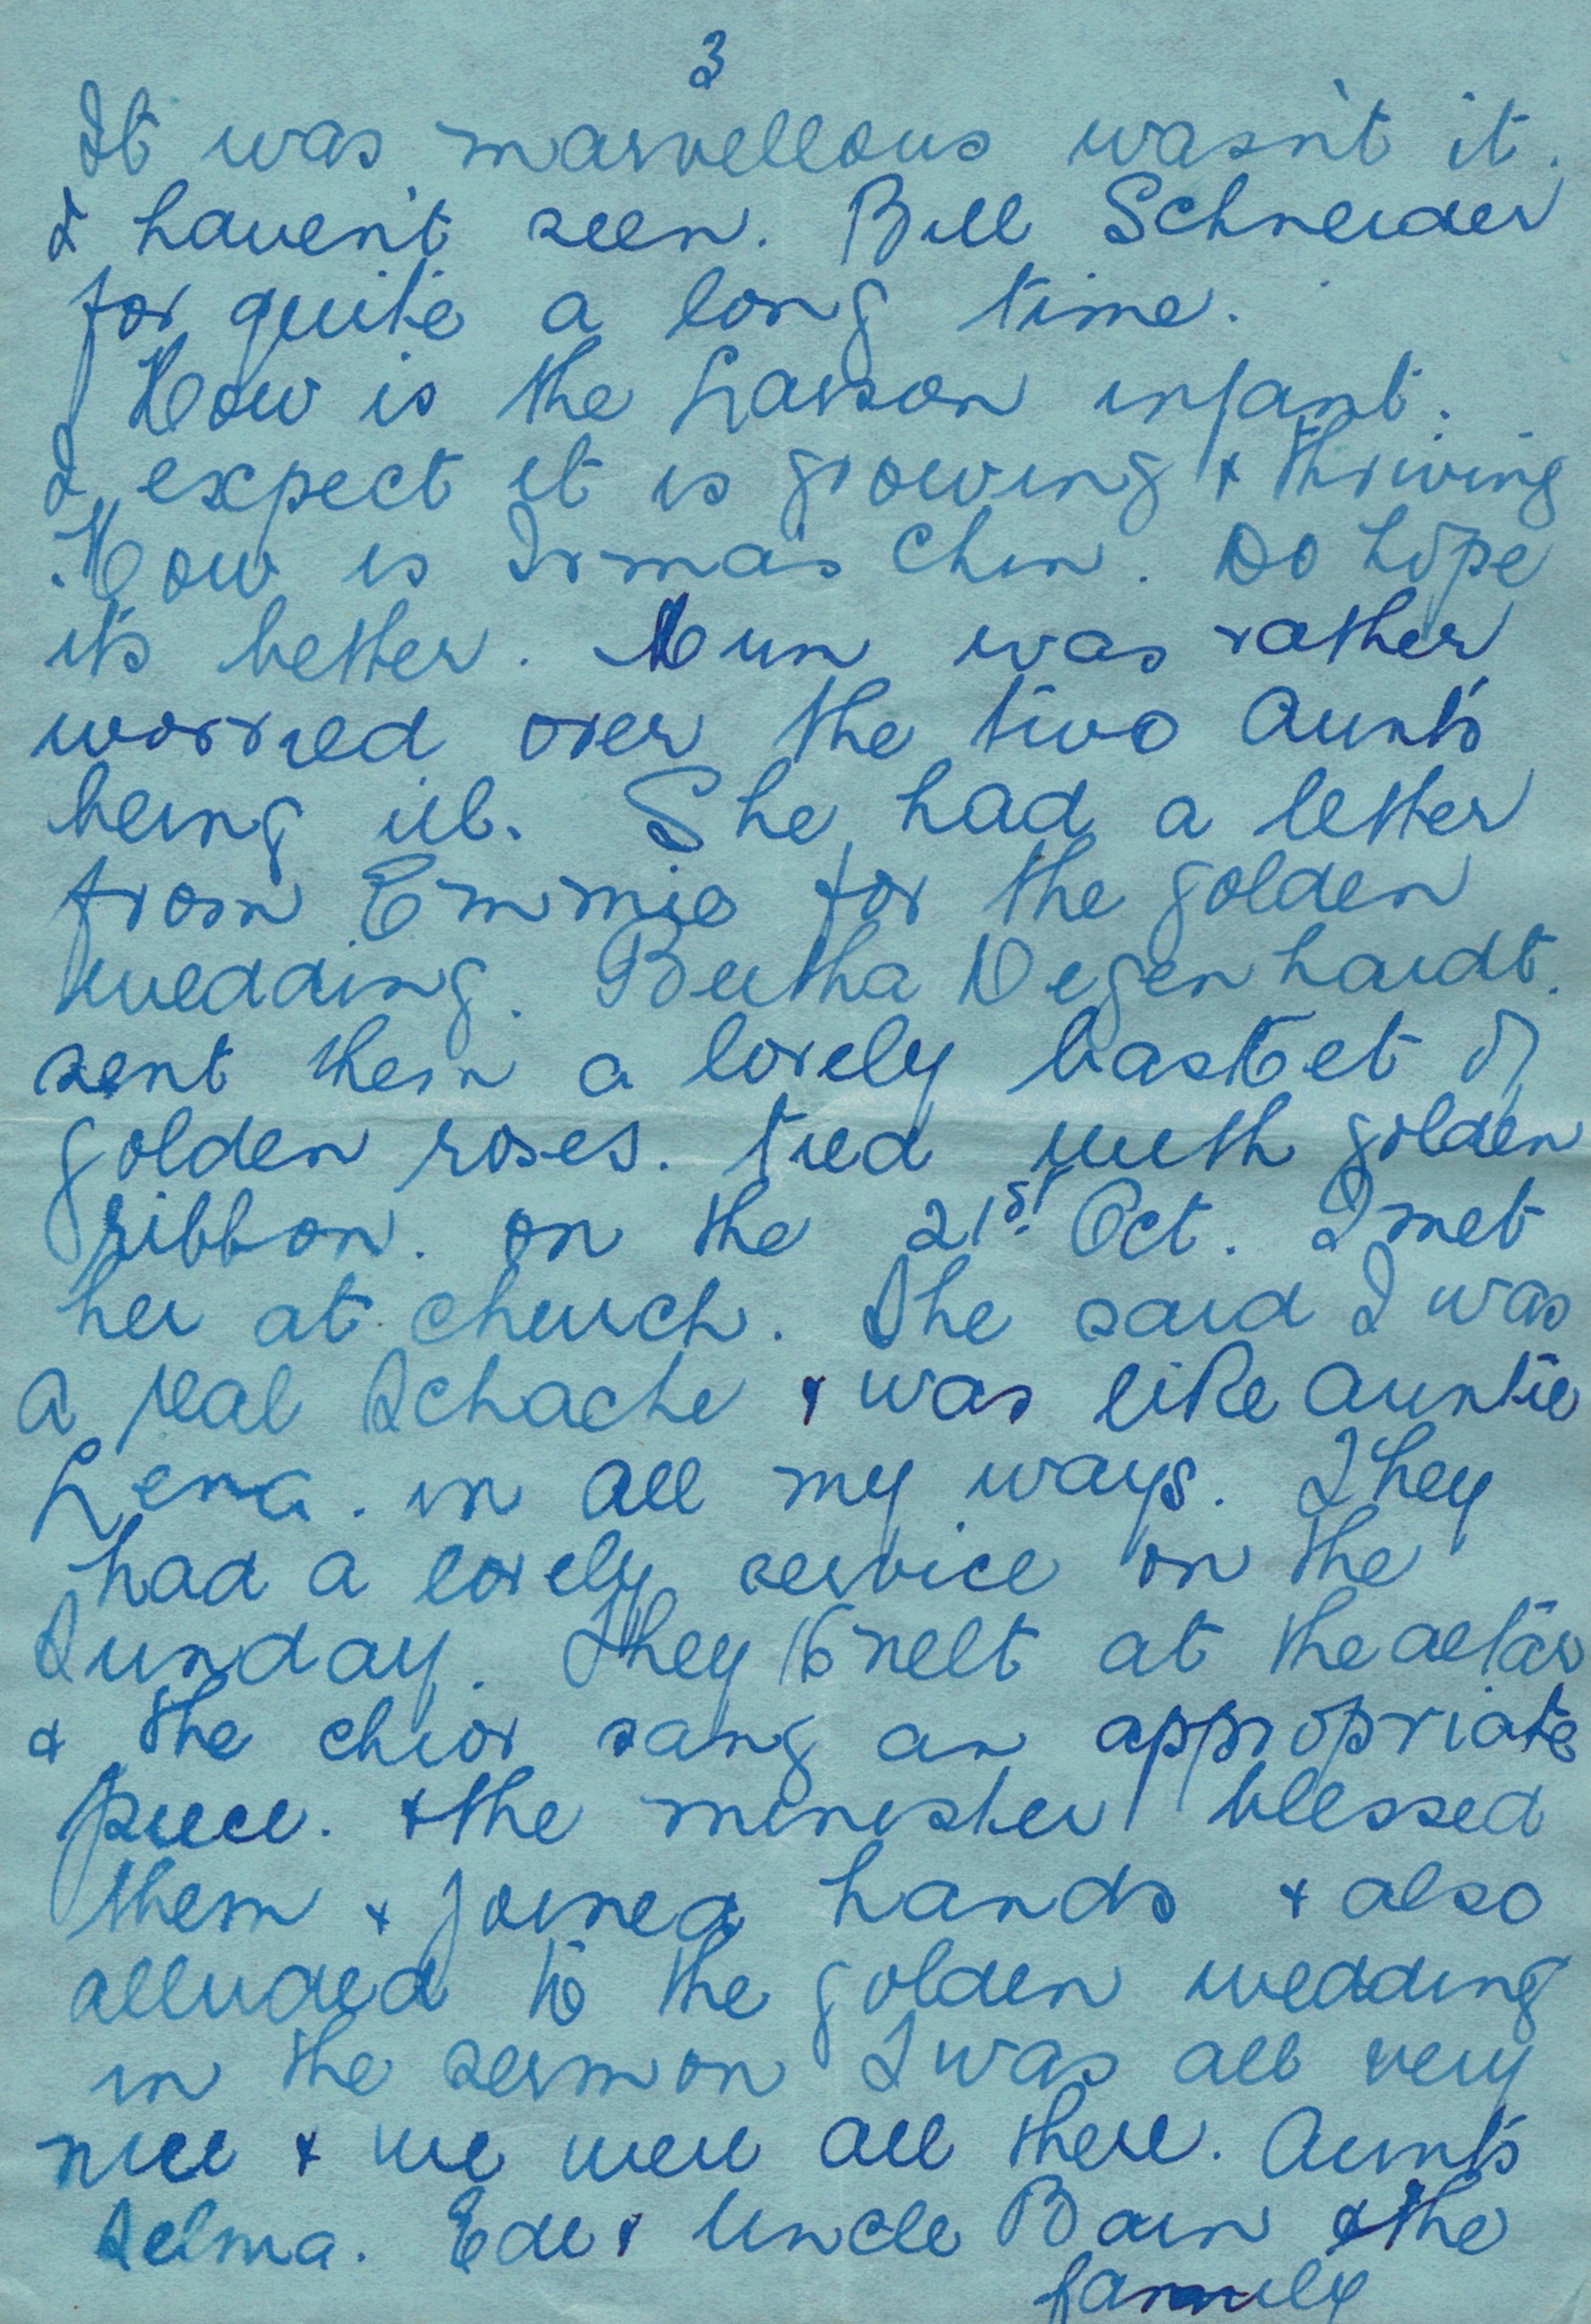 3
It was marvellous wasn't it.
I haven't seen. Bill Schneider
for quite a long time.
How is the Larson infant.
I expect it is growing & thriving
How is Irma's Chin. Do hope
it's better. Mum was rather
worried over the two Aunts
being ill. She had a letter
from Emmie for the golden
wedding. Bertha Degenhardt.
sent them a lovely basket of
golden roses. tied with golden
ribbon. on the 21st Oct. I met
her at church. She said I was
a real Schache & was like Auntie
Lena. in all my ways. They
had a lovely service on the
Sunday. They knelt at the altar
& the chior sang an appropriate
piece. & the minister blessed
them & joined hands & also
alluded to the golden wedding
in the sermon I was all very
nice & we were all there. Aunts
Selma. Edie & Uncle Bain & the
family